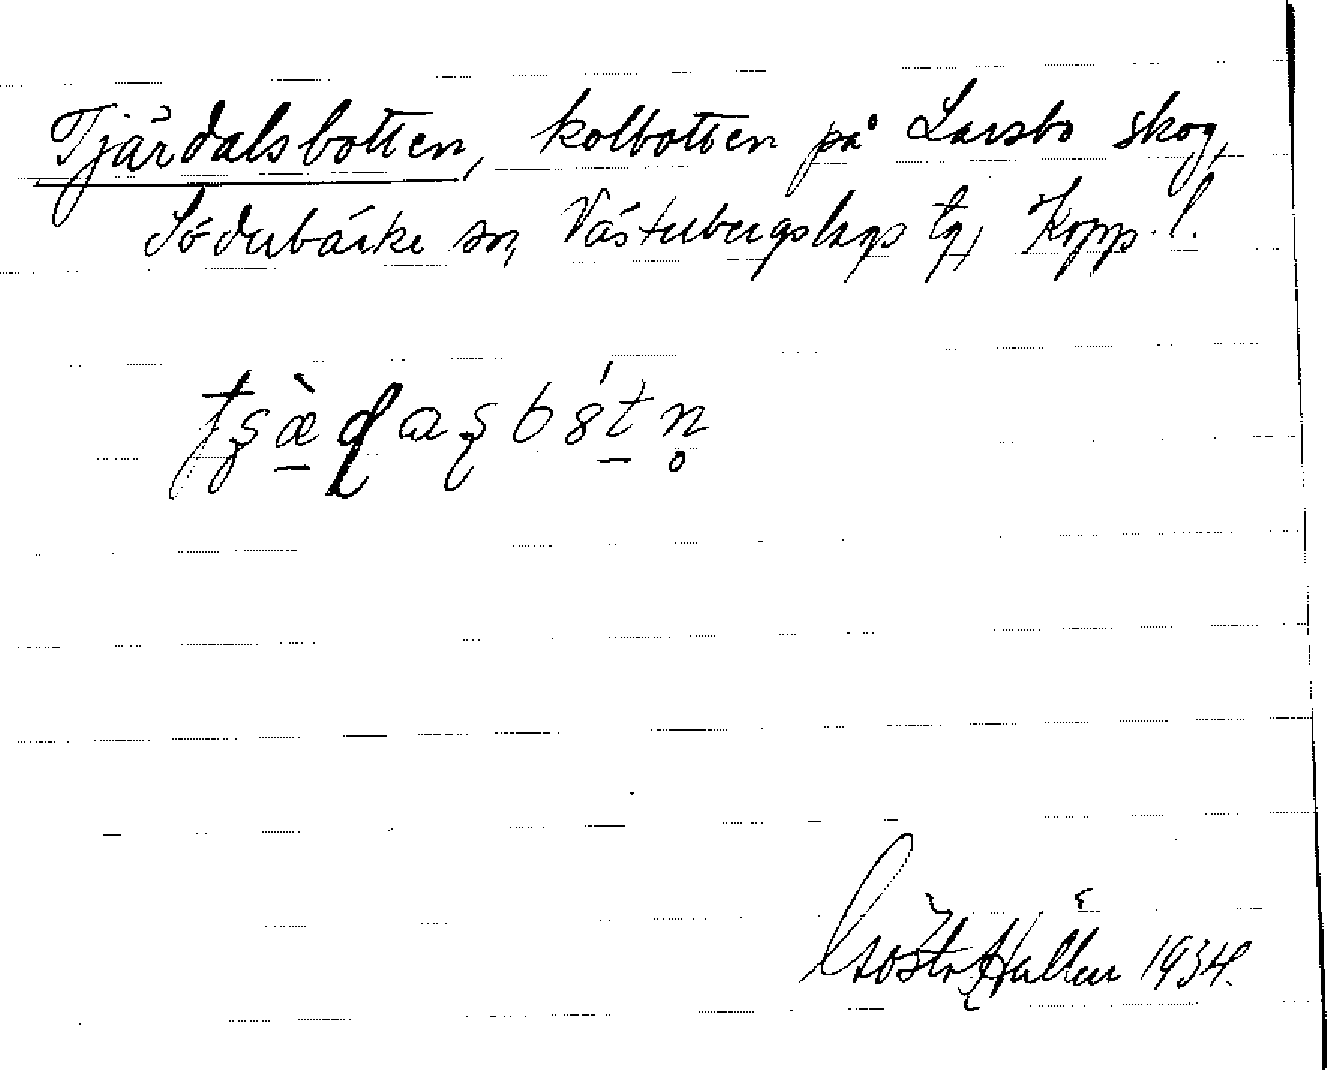 Tjärdalsbotten, kolbotten på Larsbo skog,
Söderbärke sn, Västerbergslags tg, Kopp. l.
Gösta Hallén 1934.